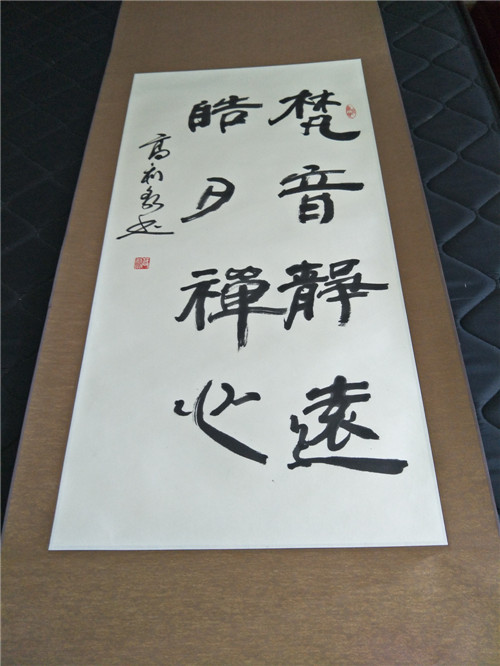 梵音靜遠
皓月禪心
高